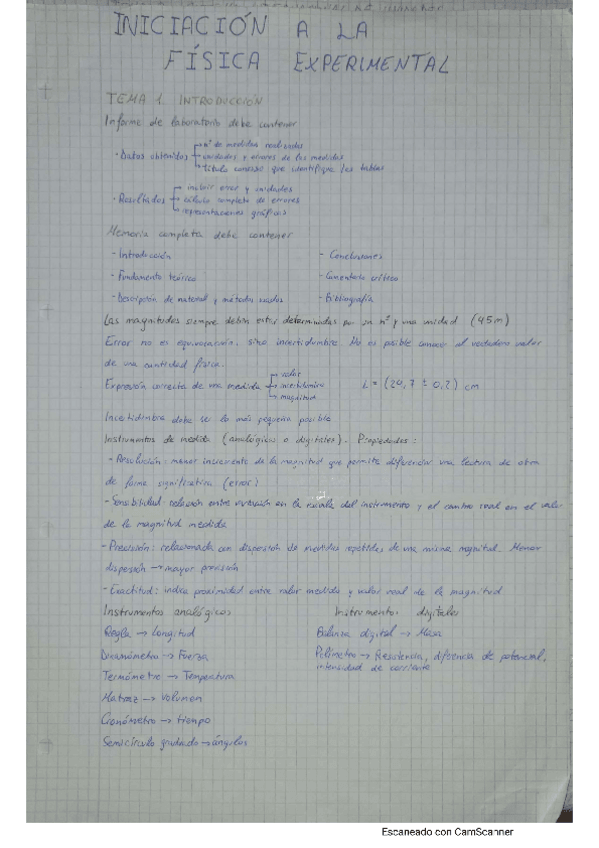 INICIACIÓN A LA
FÍSICA EXPERIMENTAL
TEMA 1. INTRODUCCIÓN
Informe de laboratorio debe contener
- Datos obtenidos → nº de medidas realizadas
→ unidades y errores de las medidas
→ título conciso que identifique las tablas
- Resultados → incluir error y unidades
→ cálculo completo de errores
→ representaciones gráficas
Memoria completa debe contener
- Introducción - Conclusiones
- Fundamento teórico - Comentario crítico
- Descripción de material y métodos usados - Bibliografía
Las magnitudes siempre deben estar determinadas por un nº y una unidad (45m)
Error no es equivocación, sino incertidumbre. No es posible conocer el verdadero valor
de una cantidad física.
Expresión correcta de una medida → valor
→ incertidumbre L = (24,7 ± 0,2) cm
→ magnitud
Incertidumbre debe ser lo más pequeña posible
Instrumentos de medida (analógicos o digitales). Propiedades:
- Resolución: menor incremento de la magnitud que permite diferenciar una lectura de otra
de forma significativa (error)
- Sensibilidad: relación entre variación en la escala del instrumento y el cambio real en el valor
de la magnitud medida
- Precisión: relacionada con dispersión de medidas repetidas de una misma magnitud. Menor
dispersión → mayor precisión
- Exactitud: indica proximidad entre valor medido y valor real de la magnitud
Instrumentos analógicos Instrumentos digitales
Regla → Longitud Balanza digital → Masa
Dinamómetro → Fuerza Polímetro → Resistencia, diferencia de potencial,
intensidad de corriente
Termómetro → Temperatura
Matraz → Volumen
Cronómetro → tiempo
Semicírculo graduado → ángulos
Escaneado con CamScanner